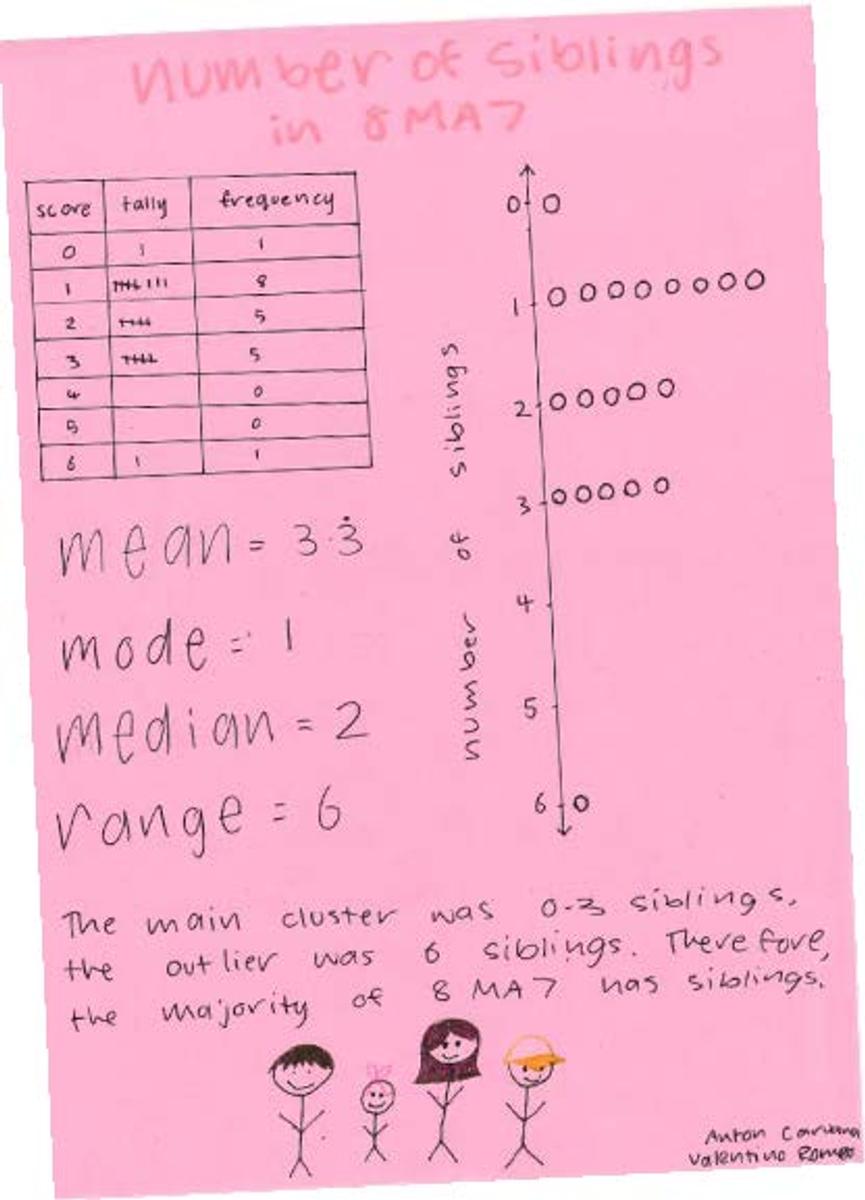 number of siblings
in 8MA7
score tally frequency
0 1
1 8
2 5
3 5
4 0
5 0
6 1
mean = 3.3̇
mode = 1
median = 2
range = 6
number of siblings
0
1
2
3
4
5
6
The main cluster was 0-3 siblings.
the outlier was 6 siblings. Therefore,
the majority of 8 MA7 has siblings.
Anton
Valentino Romeo